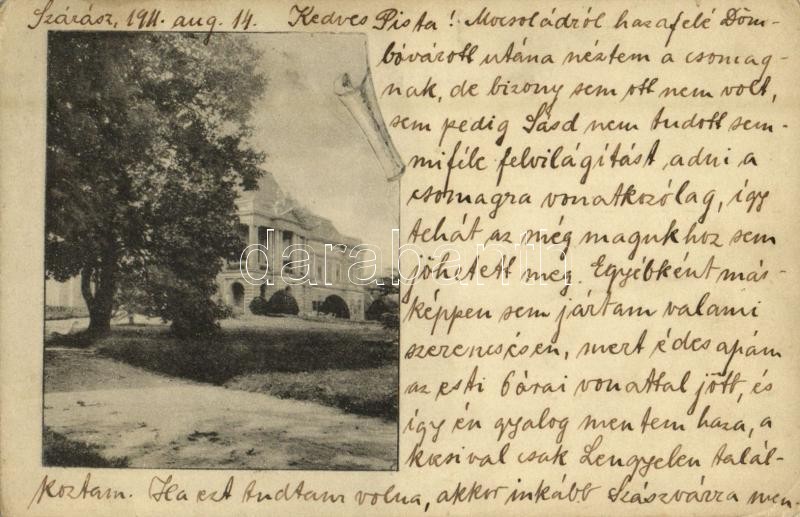 Szárász, 1911. aug. 14. Kedves Pista! Mocsoládról hazafelé Dóm-
bóvárott utána néztem a csomag-
nak, de bizony sem ott nem volt,
sem pedig Sásd nem tudott sem-
miféle felvilágítást adni a
csomagra vonatkozólag, így
tehát az még magukhoz sem
jöhetett meg. Egyébként más-
képpen sem jártam valami
szerencsésen, mert édesapám
az esti 6 órai vonattal jött, és
így én gyalog mentem haza, a
kocsival csak Lengyelen talál-
koztam. Ha ezt tudtam volna, akkor inkább Szászvárra men-
darabanth.com